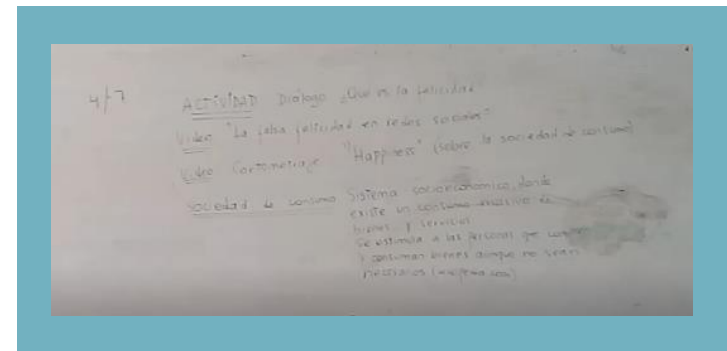 4/7 ACTIVIDAD Diálogo ¿Qué es la felicidad
Video "La falsa felicidad en redes sociales"
Video Cortometraje "Happiness" (sobre la sociedad de consumo)
sociedad de consumo Sistema socioeconómico, donde
existe un consumo excesivo de
bienes y servicios
se estimula a las personas que
y consuman bienes aunque no sean
necesarios